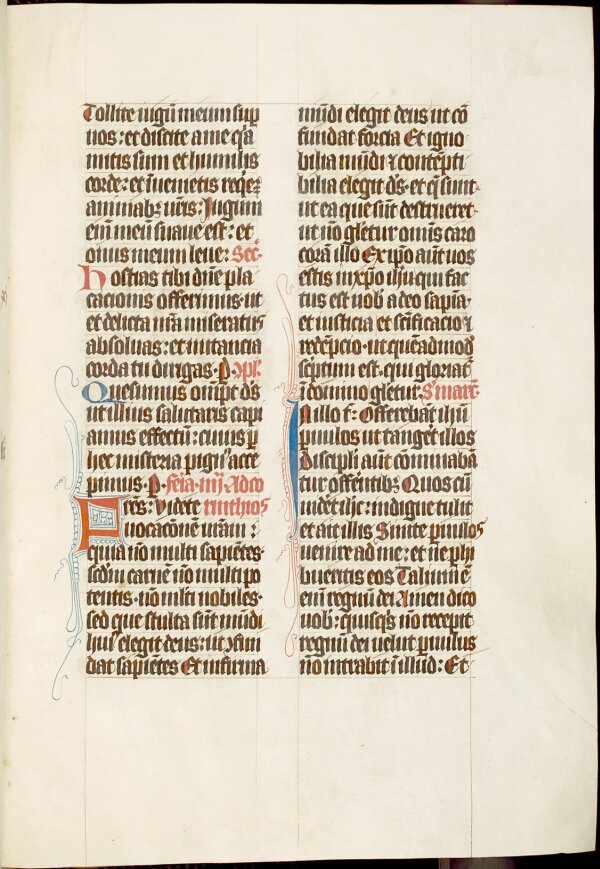 Tollite iugū meum sup
uos: et discite a me q̄a
mitis sum et humilis
corde: et īuenietis req̄ez
animabꝫ ur̄is: Jugum
eī meū suaue est: et
onus meum leue: Sec̄.
Hostias tibi dn̄e pla
cacionis offerimus· ut
et delicta nr̄a miseratus
absoluas: et nutancia
corda tu dirigas· p· 9pl̄.
Quesumus om̄pt̄ ds̄
ut illius salutaris capi
amus effectū: cuius p
hec misteria pignꝰ acce
pimus· p· fe͞ia· iiij· Ad co
Fr̄es: Videte rinthios
uocacōnē ur̄am:
quia nō multi sapiētes·
scd̄m carnē nō multi po
tentis· nō ml̄ti nobiles·
sed que stulta sūt mūdi
huiꝰ elegit deus: ut 9fun
dat sapiētes Et infirma
mūdi elegit deus ut cō
fundat forcia Et igno
bilia mūdi ⁊ contēpti
bilia elegit ds̄· et q̄ sunt·
ut ea que sūt destrueret·
ut nō glēturomnis caro
corā illo Ex ip̄o aūt uos
estis in xp̄o ih̄u qui fac
tus est nob̄ a deo sapīa·
et iusticia et sc̄ificacio ⁊
redēpcio· ut quēadmod̄
sc̄ptum est· qui gloriat̄
ī domino glētur. S' marc̄·
In illo t̄: Offerebāt ih̄ū
puulos ut tanget̄ illos
discipl̄i aūt cōminabā
tur offentibꝫ Quos cū
uidet̄ ih̄c: indigne tulit
et ait illis Sinite puulos
uenire ad me: et ne phi
bueritis eos Taliū mē
enī regnū dei Amen dico
uob̄: quisqs̄ nō recepit̄
regnū dei uelut puulus
nō intrabit ī illud: Et